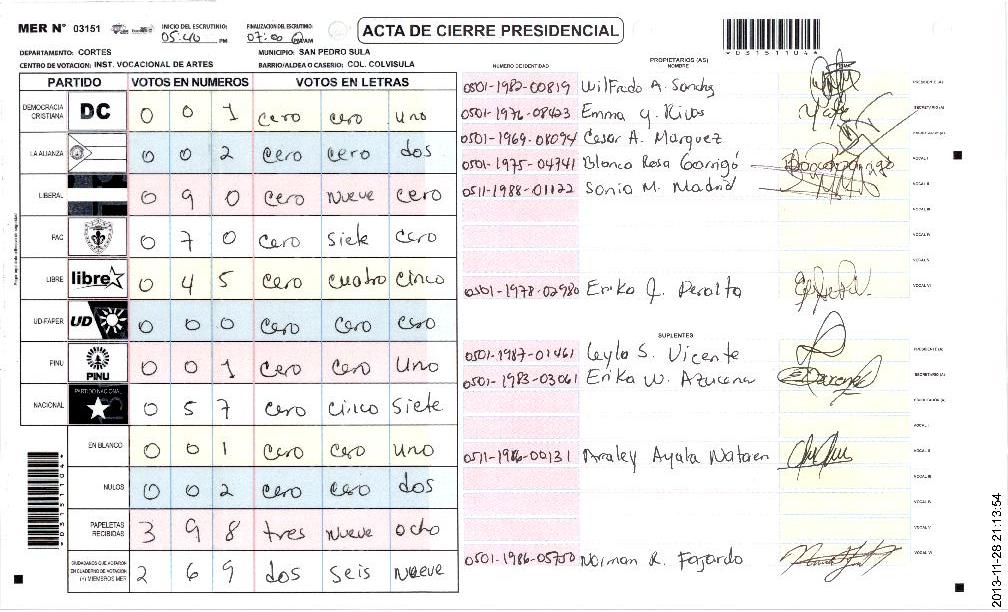 MER N° 03151
INICIO DEL ESCRUTINIO:
05:40 PM
FINALIZACION DEL ESCRUTINIO:
07:00 PM/AM
ACTA DE CIERRE PRESIDENCIAL
*03151104*
DEPARTAMENTO: CORTES
MUNICIPIO: SAN PEDRO SULA
CENTRO DE VOTACION: INST. VOCACIONAL DE ARTES
BARRIO/ALDEA O CASERIO: COL. COLVISULA
PARTIDO VOTOS EN NUMEROS VOTOS EN LETRAS
DEMOCRACIA CRISTIANA DC 0 0 1 cero cero uno
LA ALIANZA 0 0 2 cero cero dos
LIBERAL 0 9 0 cero nueve cero
PAC 0 7 0 cero siete cero
LIBRE libre 0 4 5 cero cuatro cinco
UD-FAPER UD 0 0 0 cero cero cero
PINU PINU 0 0 1 cero cero uno
NACIONAL PARTIDO NACIONAL 0 5 7 cero cinco siete
EN BLANCO 0 0 1 cero cero uno
NULOS 0 0 2 cero cero dos
PAPELETAS RECIBIDAS 3 9 8 tres nueve ocho
CIUDADANOS QUE VOTARON EN CUADERNO DE VOTACION (+) MIEMBROS MER 2 6 9 dos seis nueve
NUMERO DE IDENTIDAD
PROPIETARIOS (AS)
NOMBRE
0501-1982-00819 Wilfredo A. PRESIDENTE (A)
0501-1976-08423 Emma Y. SECRETARIO (A)
0501-1969-08094 Cesar A. Marquez
0501-1975-04741 Blanca Rosa Garrigó VOCAL I
0511-1988-01122 Sonia M. Madrid VOCAL II
VOCAL III
VOCAL IV
VOCAL V
0501-1978-02980 Erika J. Peralta VOCAL VI
SUPLENTES
0501-1987-01461 Leyla S. Vicente PRESIDENTE (A)
0501-1983-03061 Erika W. Azucena SECRETARIO (A)
VOCAL I
0511-1986-00131 Araley Ayala VOCAL II
VOCAL III
VOCAL IV
VOCAL V
0501-1986-05750 Norman R. Fajardo VOCAL VI
*03151104*
2013-11-28 21:13:54